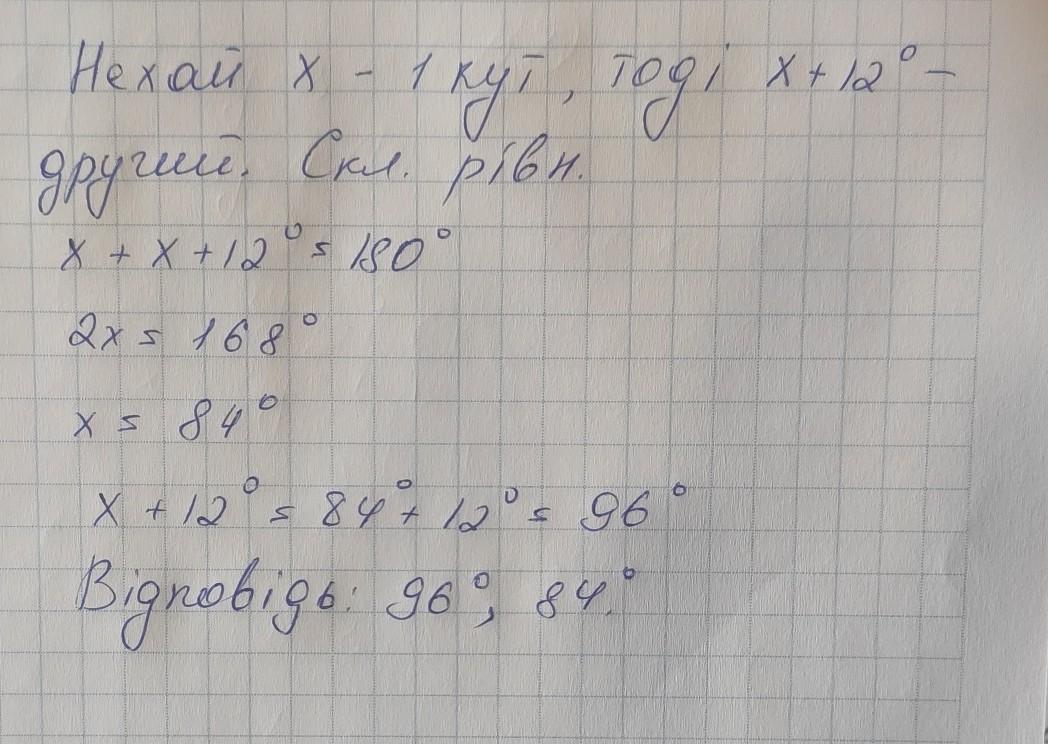 Нехай x - 1 кут, тоді x + 12° -
другий. Скл. рівн.
x + x + 12° = 180°
2x = 168°
x = 84°
x + 12° = 84° + 12° = 96°
Відповідь: 96°, 84°.